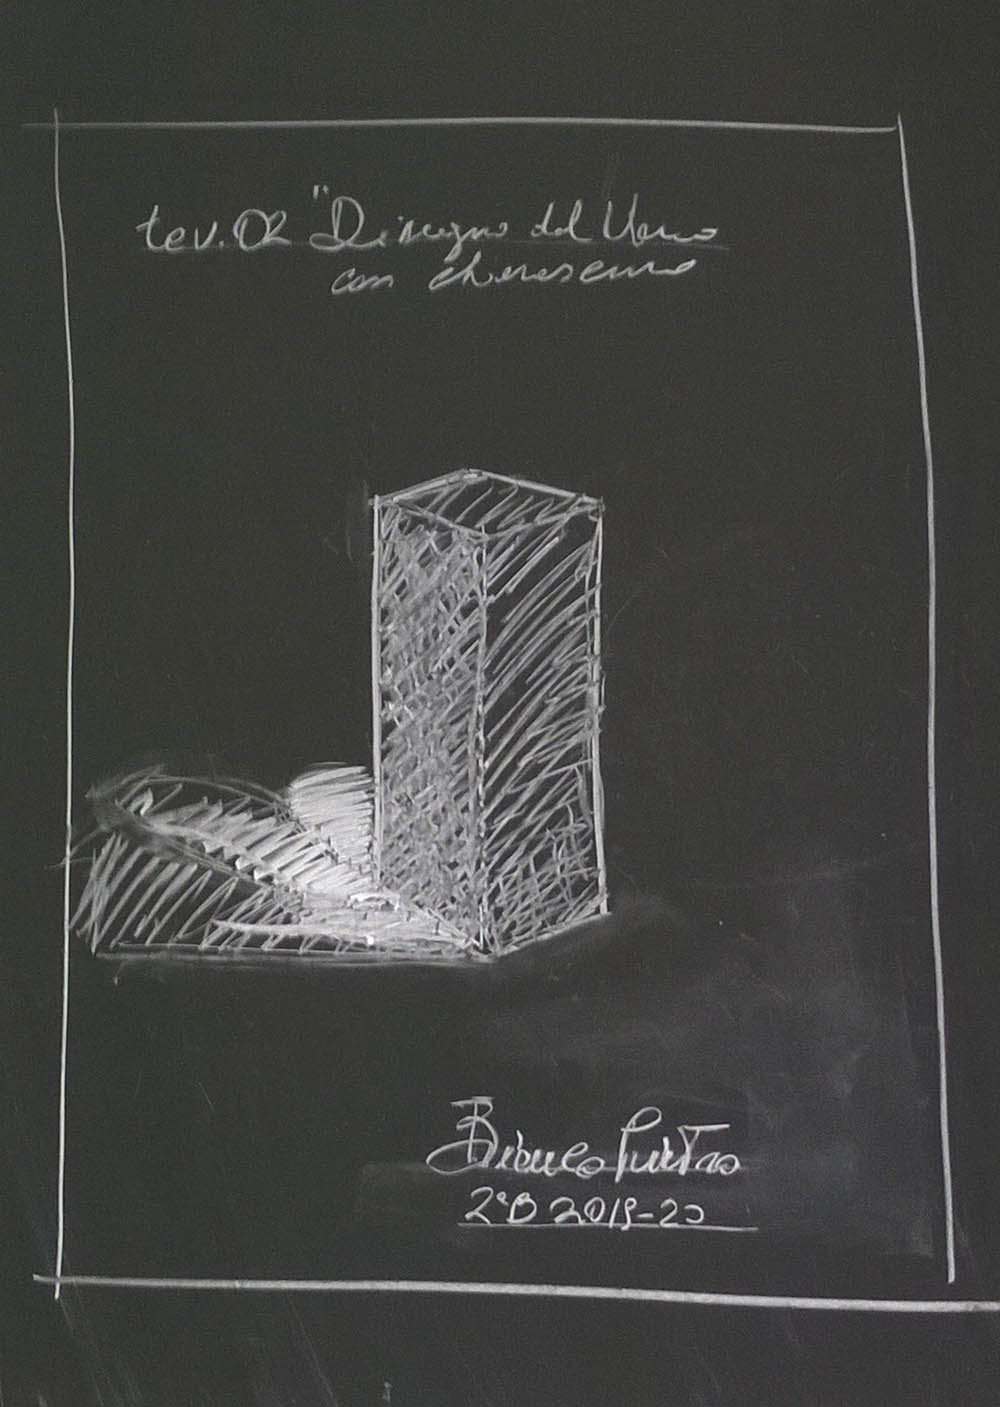 tav.02 "Disegno dal Vero
con chiaroscuro
Bianco Pietro
2°B 2019-20